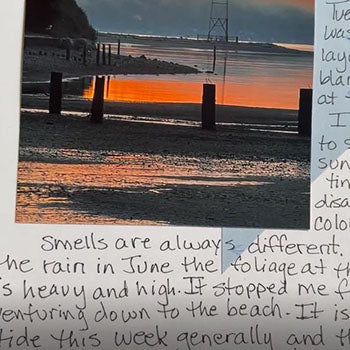 Tue
was
lay
blan
at
I
to s
sun
tin
disa
colo
Smells are always different.
the rain in June the foliage at th
is heavy and high. It stopped me f
venturing down to the beach. It is
tide this week generally and th